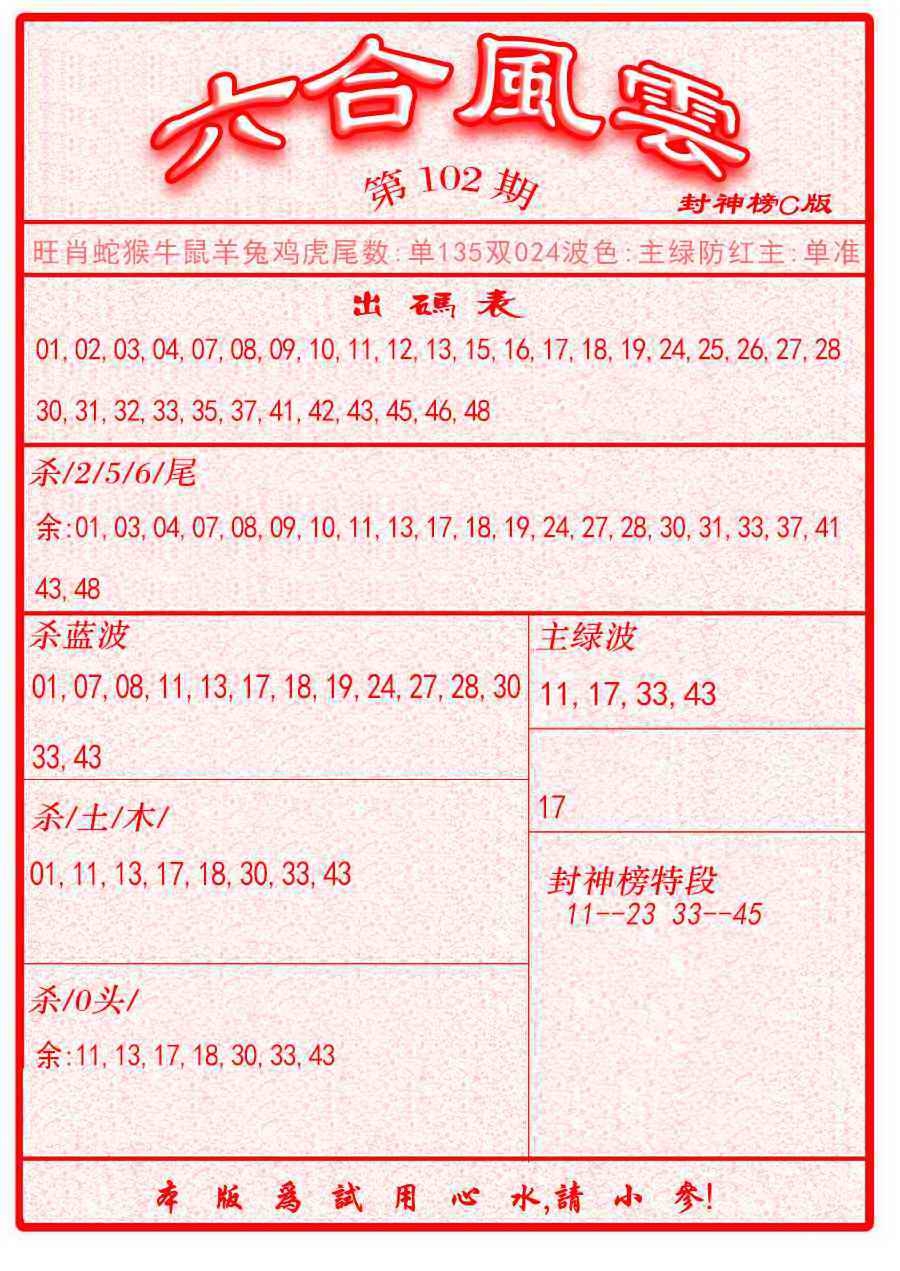 六合風雲
第102期
封神榜C版
旺肖蛇猴牛鼠羊兔鸡虎尾数:单135双024波色:主绿防红主:单准
出碼表
01,02,03,04,07,08,09,10,11,12,13,15,16,17,18,19,24,25,26,27,28
30,31,32,33,35,37,41,42,43,45,46,48
杀/2/5/6/尾
余:01,03,04,07,08,09,10,11,13,17,18,19,24,27,28,30,31,33,37,41
43,48
杀蓝波
01,07,08,11,13,17,18,19,24,27,28,30
33,43
主绿波
11,17,33,43
17
杀/土/木/
01,11,13,17,18,30,33,43
封神榜特段
11--23 33--45
杀/0头/
余:11,13,17,18,30,33,43
本版爲試用心水,請小參!